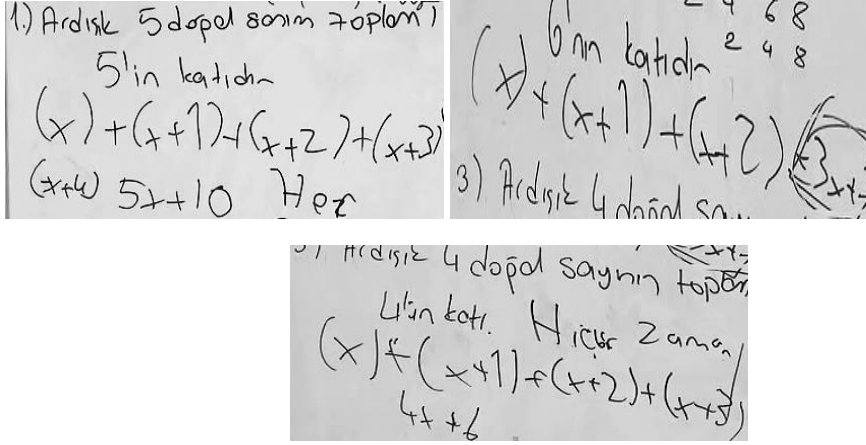 1.) Ardışık 5 doğal sayının toplamı
5'in katıdır
(x)+(x+1)+(x+2)+(x+3)
(x+4) 5x+10 Her
2 4 6 8
6'nın katıdır 2 4 8
(x)+(x+1)+(x+2)
3) Ardışık 4 doğal
Ardışık 4 doğal sayının toplamı
4'ün katı. Hiçbir Zaman
(x)+(x+1)+(x+2)+(x+3)
4x+6